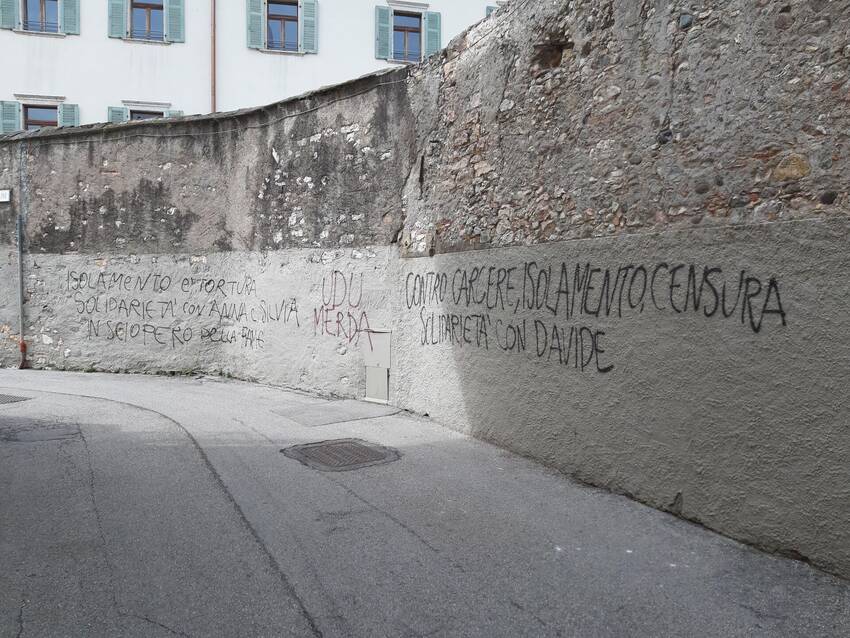 ISOLAMENTO È TORTURA
SOLIDARIETA' CON ANNA E SILVIA
IN SCIOPERO DELLA FAME
UDU
MERDA
CONTRO CARCERE, ISOLAMENTO, CENSURA
SOLIDARIETA' CON DAVIDE